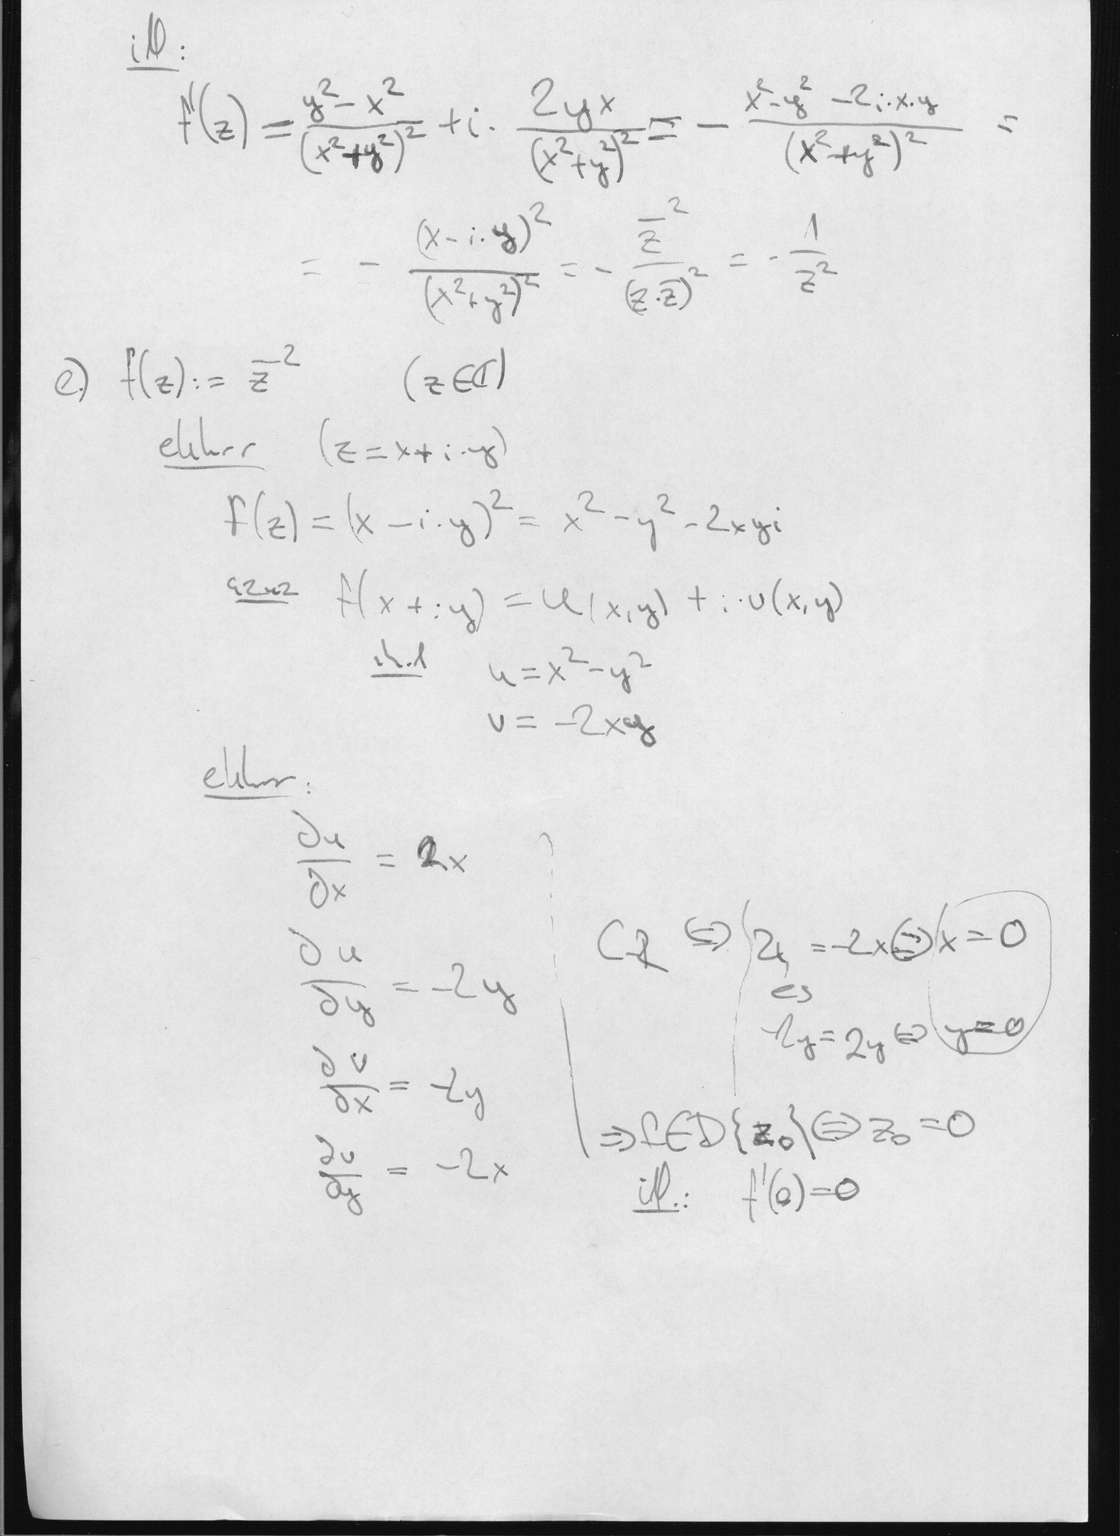 ill.:
f'(z) = (y² - x²)/(x²+y²)² + i · 2yx/(x²+y²)² = - (x² - y² - 2i·x·y)/(x²+y²)² =
= - (x - i·y)²/(x²+y²)² = - z̅²/(z·z̅)² = - 1/z²
e.) f(z) := z̅² (z∈ℂ)
ekkor (z = x + i·y)
f(z) = (x - i·y)² = x² - y² - 2xyi
azaz f(x + iy) = u(x,y) + i·v(x,y)
u = x² - y²
v = -2xy
ekkor:
∂u/∂x = 2x
∂u/∂y = -2y
∂v/∂x = -2y
∂v/∂y = -2x
CR ⇔ 2x = -2x ⇔ x = 0
és
-2y = 2y ⇔ y = 0
⇒ f∈D{z₀} ⇔ z₀ = 0
ill.: f'(0) = 0